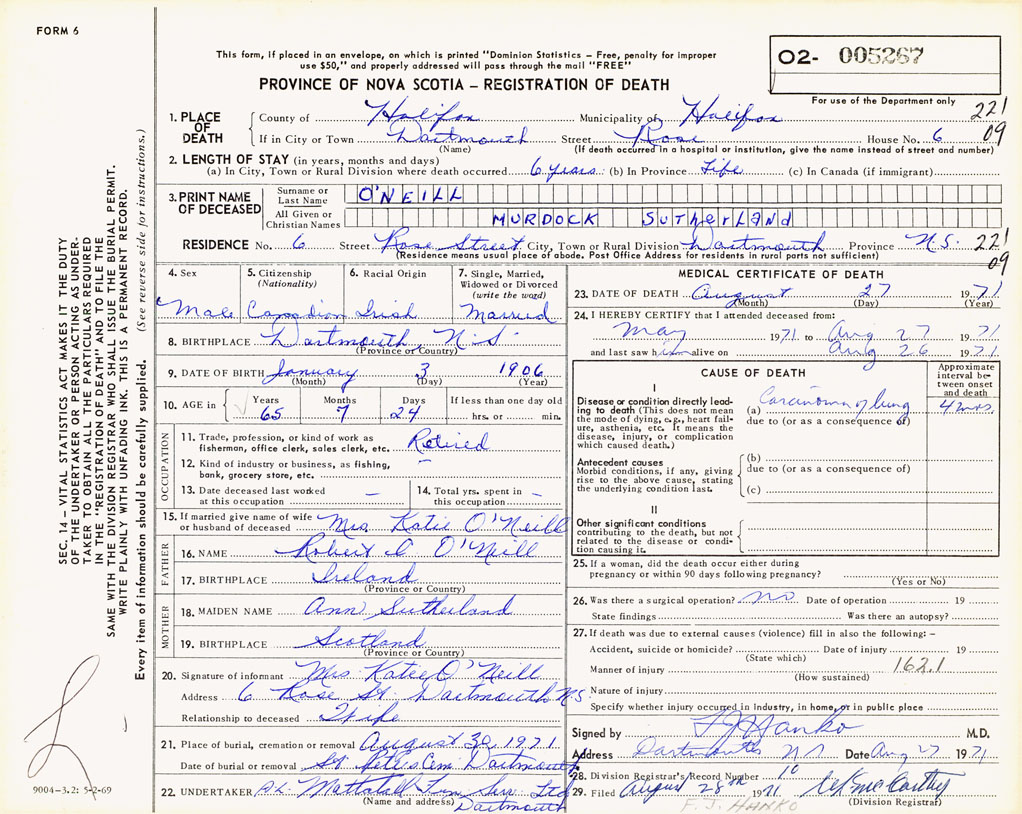 FORM 6
This form, if placed in an envelope, on which is printed "Dominion Statistics – Free, penalty for improper
use $50," and properly addressed will pass through the mail "FREE"
02- 005267
For use of the Department only
PROVINCE OF NOVA SCOTIA – REGISTRATION OF DEATH
1. PLACE OF DEATH
County of Halifax Municipality of Halifax 221
If in City or Town Dartmouth Street Rose House No. 6 09
(Name) (If death occurred in a hospital or institution, give the name instead of street and number)
2. LENGTH OF STAY (in years, months and days)
(a) In City, Town or Rural Division where death occurred 6 years (b) In Province Life (c) In Canada (if immigrant)
3. PRINT NAME OF DECEASED
Surname or Last Name O'NEILL
All Given or Christian Names MURDOCK SUTHerLANd
RESIDENCE No. 6 Street Rose Street City, Town or Rural Division Dartmouth Province N.S. 221
(Residence means usual place of abode. Post Office Address for residents in rural parts not sufficient) 09
4. Sex
Male
5. Citizenship
(Nationality)
Canadian
6. Racial Origin
Irish
7. Single, Married,
Widowed or Divorced
(write the word)
Married
8. BIRTHPLACE Dartmouth N.S
(Province or Country)
9. DATE OF BIRTH January 3 1906
(Month) (Day) (Year)
10. AGE in
Years Months Days If less than one day old
65 7 24 hrs. or min.
OCCUPATION
11. Trade, profession, or kind of work as
fisherman, office clerk, sales clerk, etc. Retired
12. Kind of industry or business, as fishing,
bank, grocery store, etc. –
13. Date deceased last worked
at this occupation –
14. Total yrs. spent in
this occupation –
15. If married give name of wife
or husband of deceased Mrs Katie O'Neill
FATHER
16. NAME Robert O'Neill
17. BIRTHPLACE Ireland
(Province or Country)
MOTHER
18. MAIDEN NAME Ann Sutherland
19. BIRTHPLACE Scotland
(Province or Country)
20. Signature of informant Mrs Katie O'Neill
Address 6 Rose St. Dartmouth N.S.
Relationship to deceased Wife
21. Place of burial, cremation or removal August 30, 1971
Date of burial or removal St Peter's Cem. Dartmouth
22. UNDERTAKER Mattatall Fun Serv Ltd
(Name and address) Dartmouth
MEDICAL CERTIFICATE OF DEATH
23. DATE OF DEATH August 27 1971
(Month) (Day) (Year)
24. I HEREBY CERTIFY that I attended deceased from:
May 1971 to Aug 27 1971
and last saw him alive on Aug 26 1971
CAUSE OF DEATH
Approximate
interval be-
tween onset
and death
I
Disease or condition directly lead-
ing to death (This does not mean
the mode of dying, e.g., heart fail-
ure, asthenia, etc. It means the
disease, injury, or complication
which caused death.)
(a) Carcinoma of lung 4 mos.
due to (or as a consequence of)
Antecedent causes
Morbid conditions, if any, giving
rise to the above cause, stating
the underlying condition last.
(b)
due to (or as a consequence of)
(c)
II
Other significant conditions
contributing to the death, but not
related to the disease or condi-
tion causing it.
25. If a woman, did the death occur either during
pregnancy or within 90 days following pregnancy?
(Yes or No)
26. Was there a surgical operation? No Date of operation 19
State findings Was there an autopsy?
27. If death was due to external causes (violence) fill in also the following: –
Accident, suicide or homicide? Date of injury 19
(State which)
Manner of injury 162.1
(How sustained)
Nature of injury
Specify whether injury occurred in industry, in home, or in public place
Signed by F J Hanko M.D.
Address Dartmouth NS Date Aug 27 1971
28. Division Registrar's Record Number 10
29. Filed August 28th 1971 McCarthy
(Division Registrar)
F. J. HANKO
SEC. 14 – VITAL STATISTICS ACT MAKES IT THE DUTY
OF THE UNDERTAKER OR PERSON ACTING AS UNDER-
TAKER TO OBTAIN ALL THE PARTICULARS REQUIRED
IN THE "REGISTRATION OF DEATH" AND TO FILE THE
SAME WITH THE DIVISION REGISTRAR WHO SHALL ISSUE THE BURIAL PERMIT.
WRITE PLAINLY WITH UNFADING INK. THIS IS A PERMANENT RECORD.
Every item of information should be carefully supplied. (See reverse side for instructions.)
9004-3.2: 5-2-69